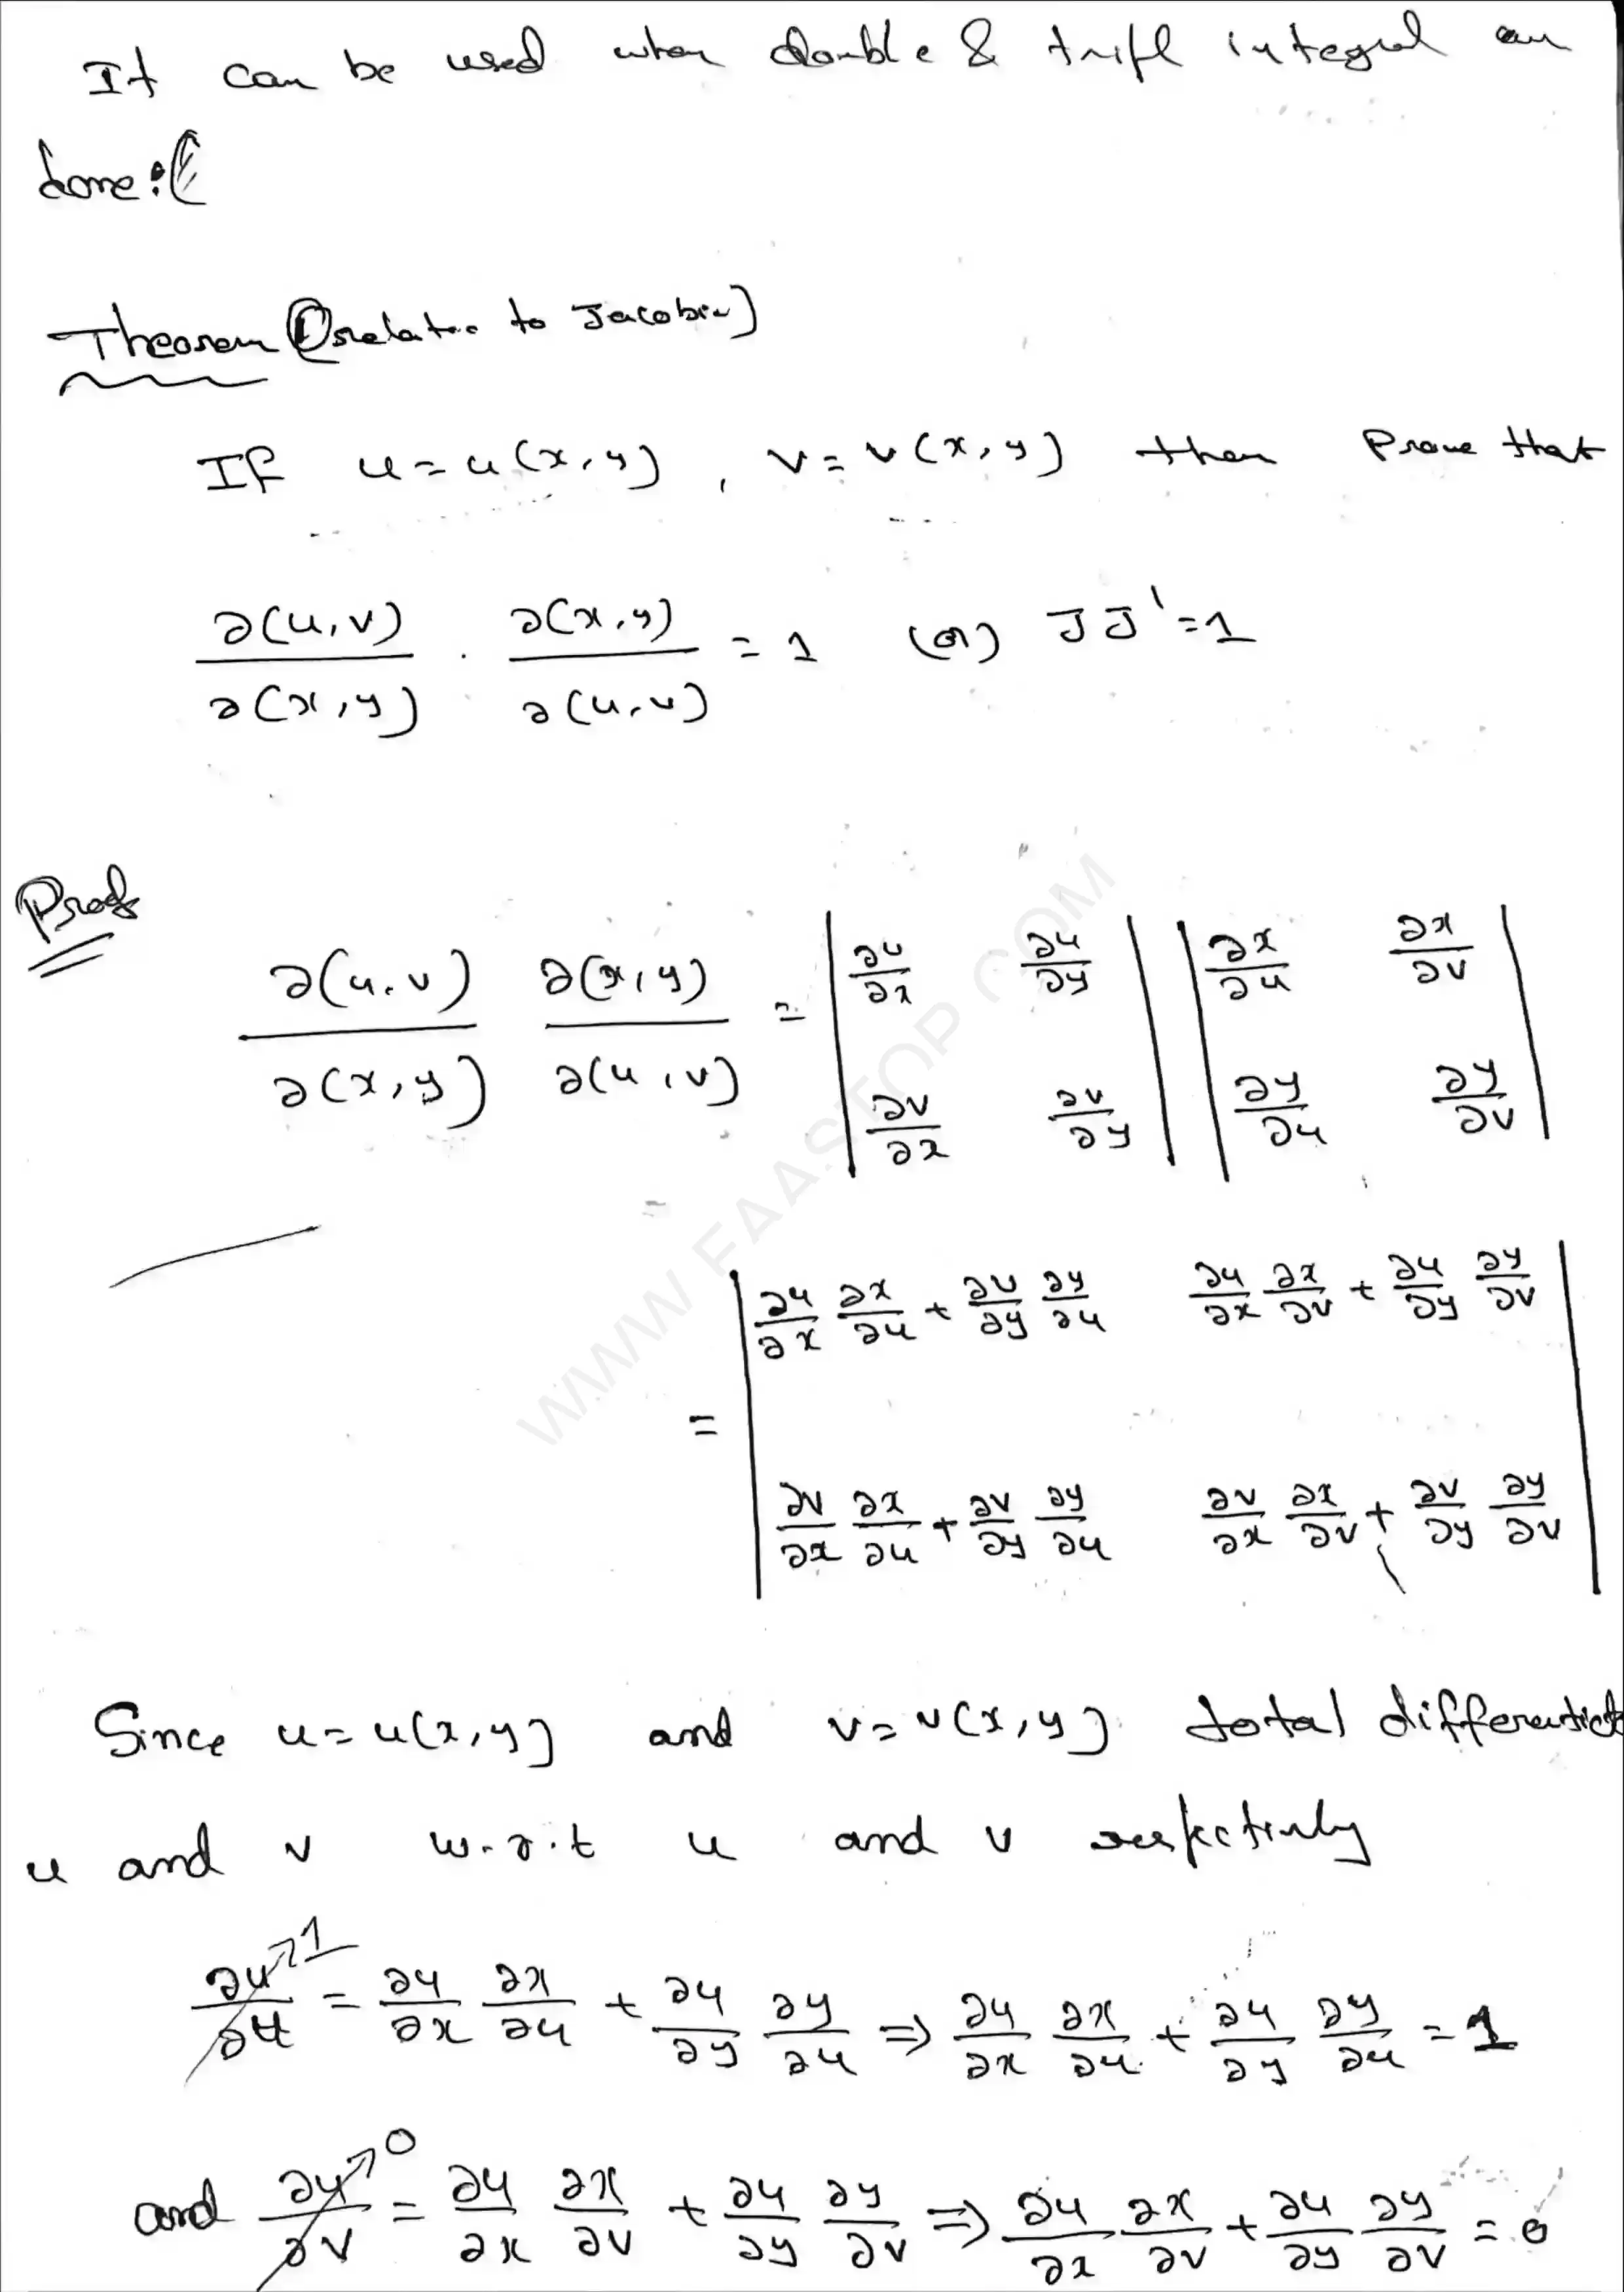 It can be used when double & tripl integral an
done:
Theorem ① relatio to Jacobin)
If u = u(x,y) , v = v(x,y) then Prove that
∂(u,v)/∂(x,y) . ∂(x,y)/∂(u,v) = 1 (or) JJ' = 1
Proof
∂(u,v)/∂(x,y) ∂(x,y)/∂(u,v) = | ∂u/∂x ∂u/∂y | | ∂x/∂u ∂x/∂v |
| ∂v/∂x ∂v/∂y | | ∂y/∂u ∂y/∂v |
= | ∂u/∂x ∂x/∂u + ∂u/∂y ∂y/∂u ∂u/∂x ∂x/∂v + ∂u/∂y ∂y/∂v |
| ∂v/∂x ∂x/∂u + ∂v/∂y ∂y/∂u ∂v/∂x ∂x/∂v + ∂v/∂y ∂y/∂v |
Since u = u(x,y) and v = v(x,y) total differentiat
u and v w.r.t u and v respectively
∂u/∂u ↗1 = ∂u/∂x ∂x/∂u + ∂u/∂y ∂y/∂u ⇒ ∂u/∂x ∂x/∂u + ∂u/∂y ∂y/∂u = 1
and ∂u/∂v ↗0 = ∂u/∂x ∂x/∂v + ∂u/∂y ∂y/∂v ⇒ ∂u/∂x ∂x/∂v + ∂u/∂y ∂y/∂v = 0
WWW.FAASTOP.COM